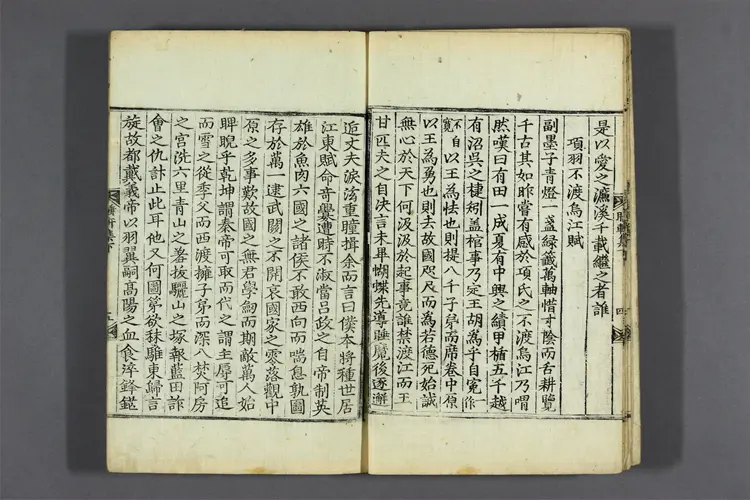 是以愛之濂溪千載繼之者誰
項羽不渡烏江賦
副墨子青燈一盞緑籤萬軸惜寸陰而舌耕覽
千古其如昨嘗有感於項氏之不渡烏江乃喟
然嘆曰有田一成夏有中興之績甲楯五千越
有沼吳之棲矧蓋棺事乃定王胡為乎自寃一作
不自寬以王為怯也則提八千子弟而席卷中原
以王為勇也則去故國咫尺而為若德死始誠
無心於天下何汲汲於起事竟誰禁渡江而王
甘匹夫之自决言未畢蝴蝶先導睡魔後逐邂
逅丈夫淚泫重瞳揖余而言曰僕本將種世居
江東賦命奇釁遭時不淑當吕政之自帝制英
雄於魚肉六國之諸侯不敢西向而喘息孰圖
存於萬一逮武關之不開哀國家之零落觀中
原之多事歎故國之無君學劒而期敵萬人始
睥睨乎乾坤謂秦帝可取而代之謂主辱可追
而雪之從季父而西渡擁子弟而深入焚阿房
之宮洗六里青山之羞拔驪山之塚報藍田詐
會之仇計止此耳他又何圖第欲秣騅東歸言
旋故都戴義帝以羽翼嗣高陽之血食淬鋒鋩
四